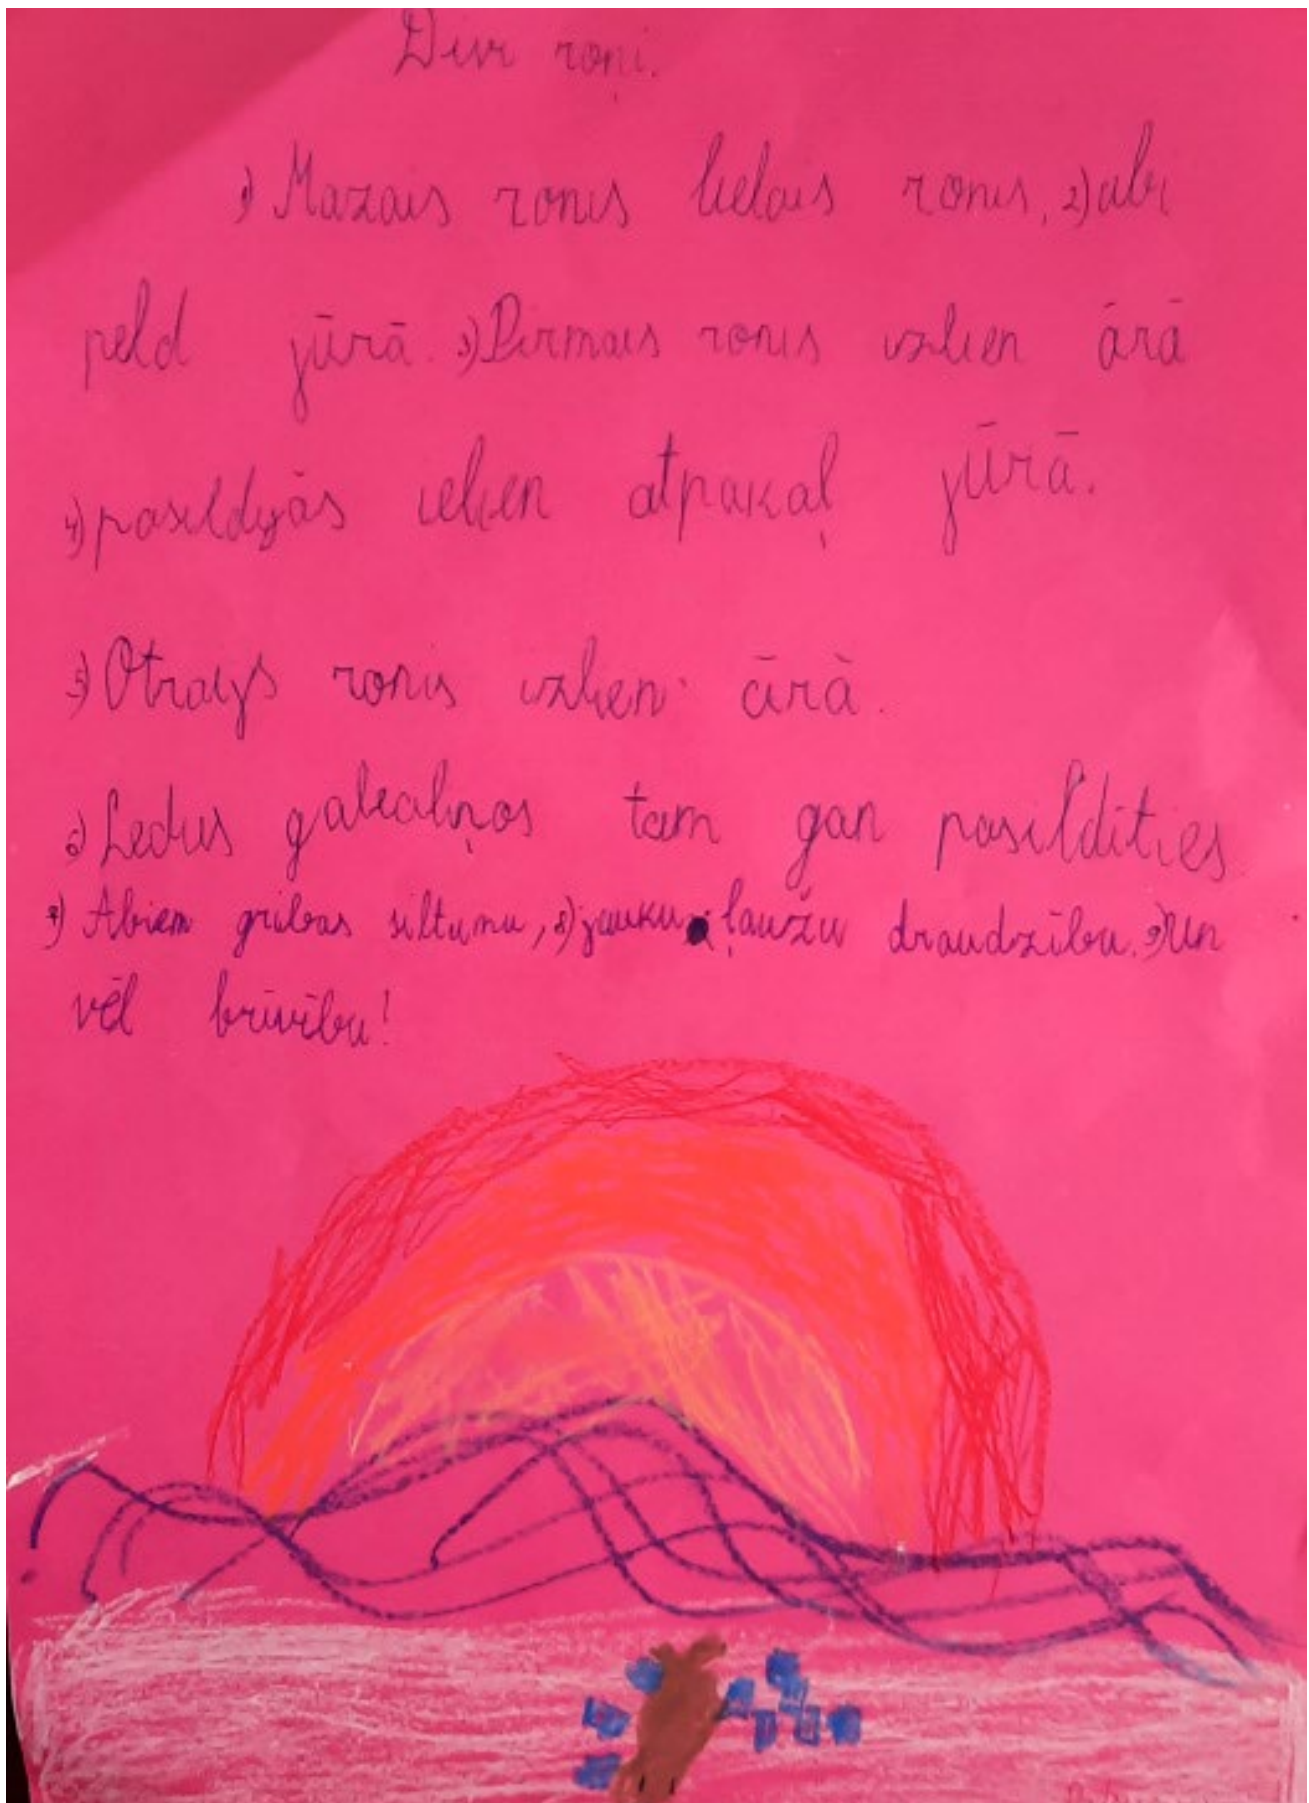 Divi roņi.
1) Mazais ronis lielais ronis, 2) abi
peld jūrā. 3) Pirmais ronis izlien ārā
4) pasildijās ielien atpakaļ jūrā.
5) Otrais ronis izlien ārā.
6) Ledus gabaliņos tam gan pasildīties
7) Abiem gribas siltumu, 8) jauku ļaužu draudzību. 9) Un
vēl brīvību!